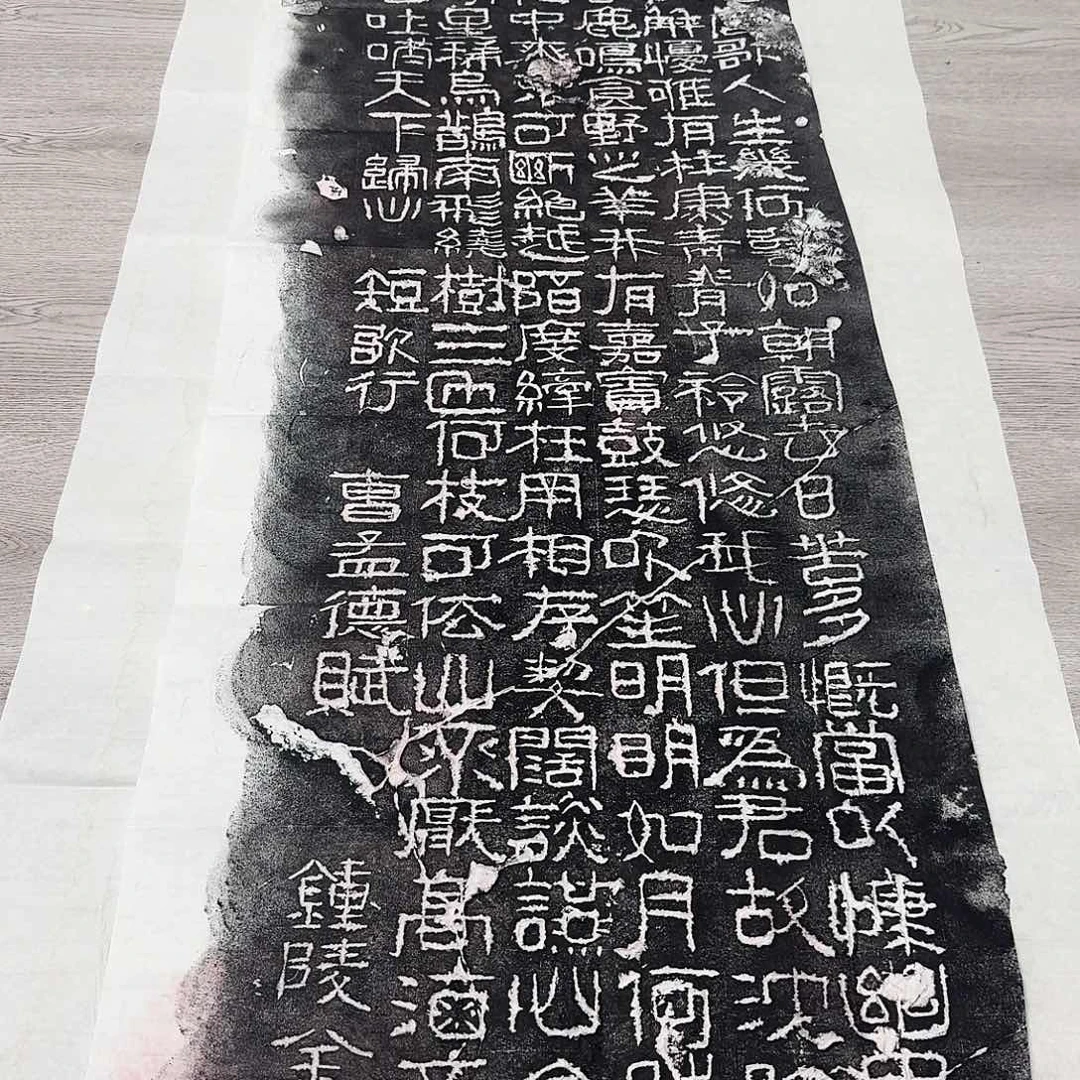 歌人生幾何譬如朝露去日苦多慨當以慷幽
解懮唯有杜康青青子衿悠悠我心但為君故沈
鹿鳴食野之苹我有嘉賓鼓瑟吹笙明明如月何時
中來不可斷絕越陌度枉用相存契闊談讌心念
星稀烏鵲南飛繞樹三匝何枝可依山不厭高海不
吐哺天下歸心 短歌行 曹孟德賦 鍾陵